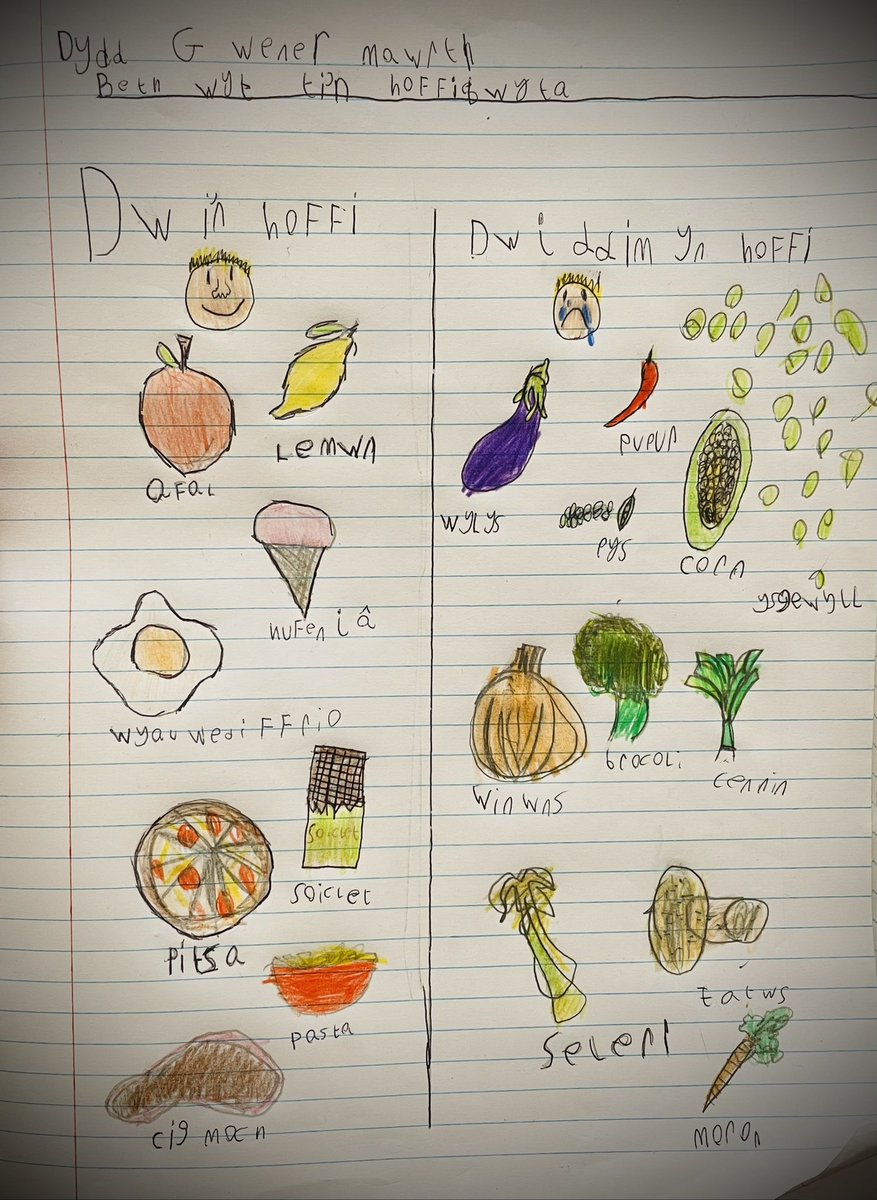 Dydd Gwener mawrth
Beth wyt ti'n hoffi bwyta
Dw i'n hoffi
afal
Lemwn
hufen iâ
wyau wedi FFrio
soiclet
soiclet
Pitsa
pasta
cig mocn
Dw i ddim yn hoffi
pupur
wylys
pys
corn
ysgewyll
Winwns
brocoli
cennin
Seleri
tatws
moron